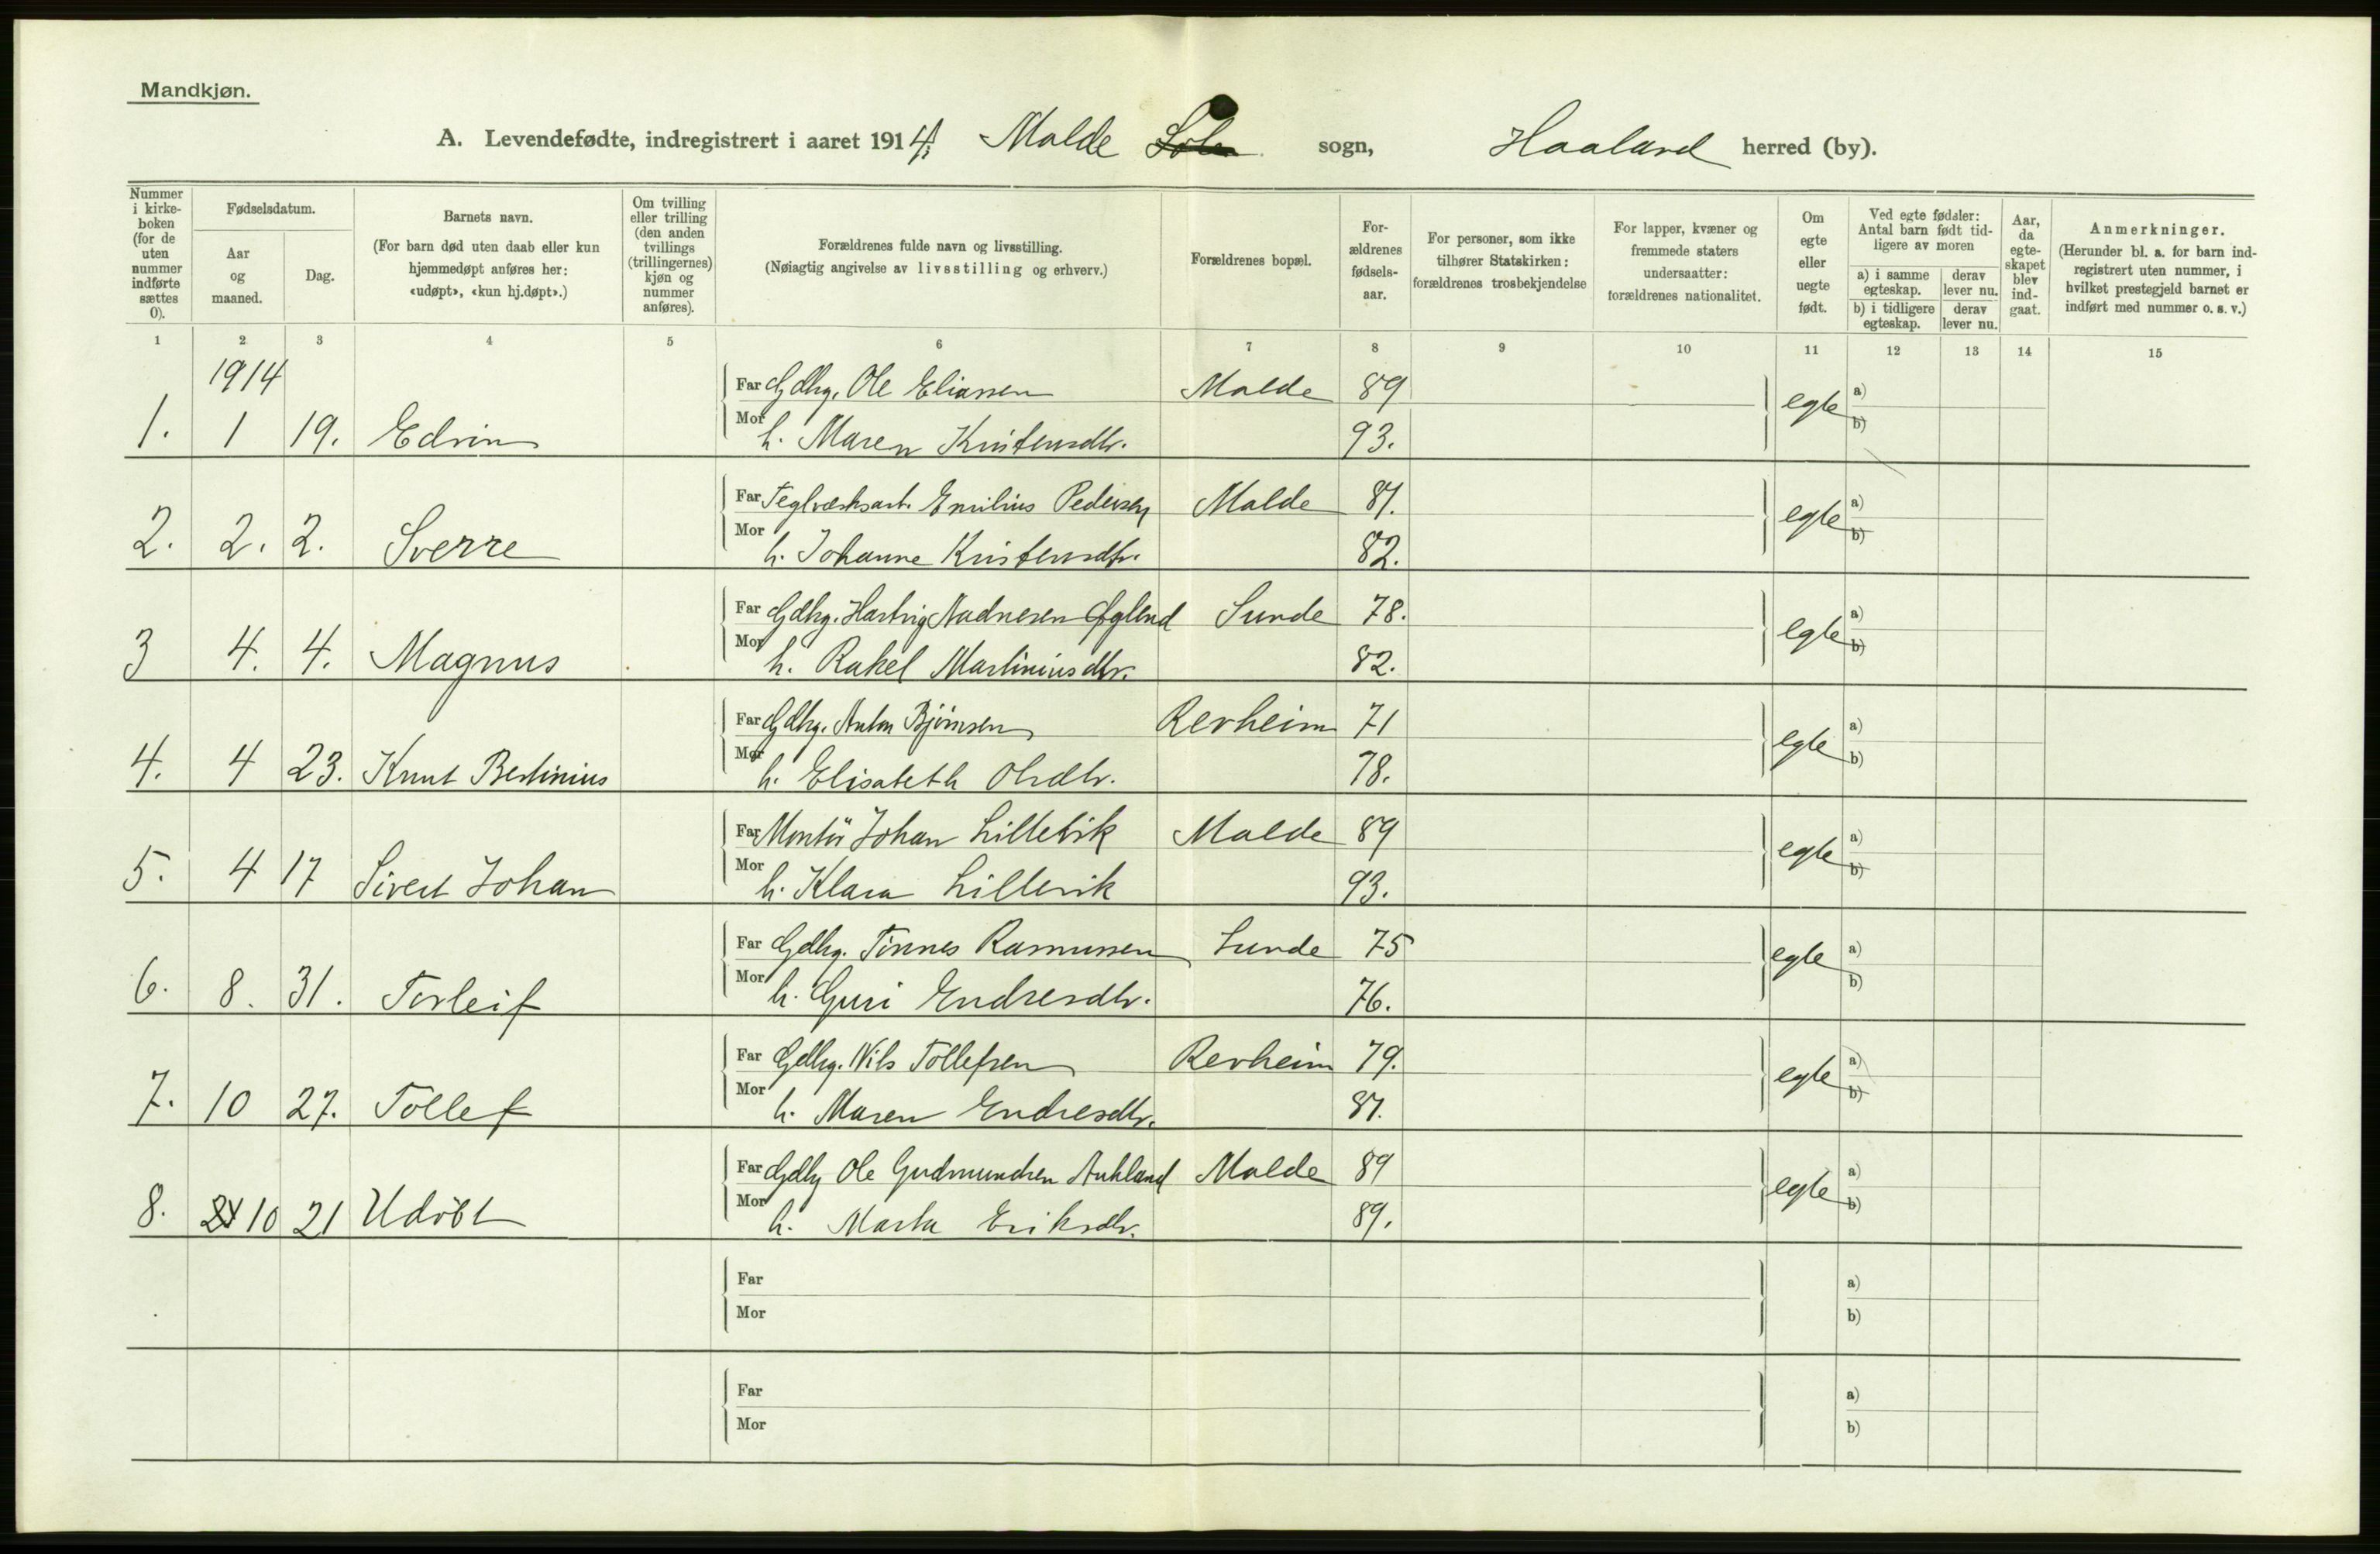 Mandkjøn.
A. Levendefødte, indregistrert i aaret 1914. Malde sogn, Haaland herred (by).
Nummer i kirke-boken (for de uten nummer indførte sættes 0).
Fødselsdatum.
Aar og maaned.
Dag.
Barnets navn.
(For barn død uten daab eller kun hjemmedøpt anføres her: «udøpt», «kun hj.døpt».)
Om tvilling eller trilling (den anden tvillings (trillingernes) kjøn og nummer anføres).
Forældrenes fulde navn og livsstilling.
(Nøiagtig angivelse av livsstilling og erhverv.)
Forældrenes bopæl.
For-ældrenes fødsels-aar.
For personer, som ikke tilhører Statskirken: forældrenes trosbekjendelse
For lapper, kvæner og fremmede staters undersaatter: forældrenes nationalitet.
Om egte eller uegte født.
Ved egte fødsler: Antal barn født tid-ligere av moren
a) i samme egteskap.
derav lever nu.
b) i tidligere egteskap.
derav lever nu.
Aar, da egte-skapet blev ind-gaat.
Anmerkninger.
(Herunder bl. a. for barn ind-registrert uten nummer, i hvilket prestegjeld barnet er indført med nummer o. s. v.)
1 2 3 4 5 6 7 8 9 10 11 12 13 14 15
1914
Far Gdbg. Ole Eliassen Malde 89 a)
1. 1 19. Edvin Mor h. Maren Kristensdtr. 93. egte b)
Far Teglverksarb. Emilius Pedersen Malde 87. a)
2. 2. 2. Sverre Mor h. Johanne Kristensdtr. 82. egte b)
Far Gdbg. Hartvig Øglend Sunde 78. a)
3 4. 4. Magnus Mor h. Rakel Martiniusdtr. 82. egte b)
Far Gdbg. Anton Bjørnsen Revheim 71 a)
4. 4 23. Knut Bertinius Mor h. Elisabeth Olsdtr. 78. egte b)
Far Montør Johan Lillevik Malde 89 a)
5. 4 17 Sivert Johan Mor h. Klara Lillevik 93. egte b)
Far Gdbg. Tønnes Rasmussen Sunde 75 a)
6. 8. 31. Torleif Mor h. Guri Endresdtr. 76. egte b)
Far Gdbg. Nils Tollefsen Revheim 79. a)
7. 10 27. Tollef Mor h. Maren Endresdtr. 87. egte b)
Far Gdbg Ole Gudmundsen Aukland Malde 89 a)
8. 10 21 Udøbt Mor h. Marta Eriksdtr. 89. egte b)
Far a)
Mor b)
Far a)
Mor b)